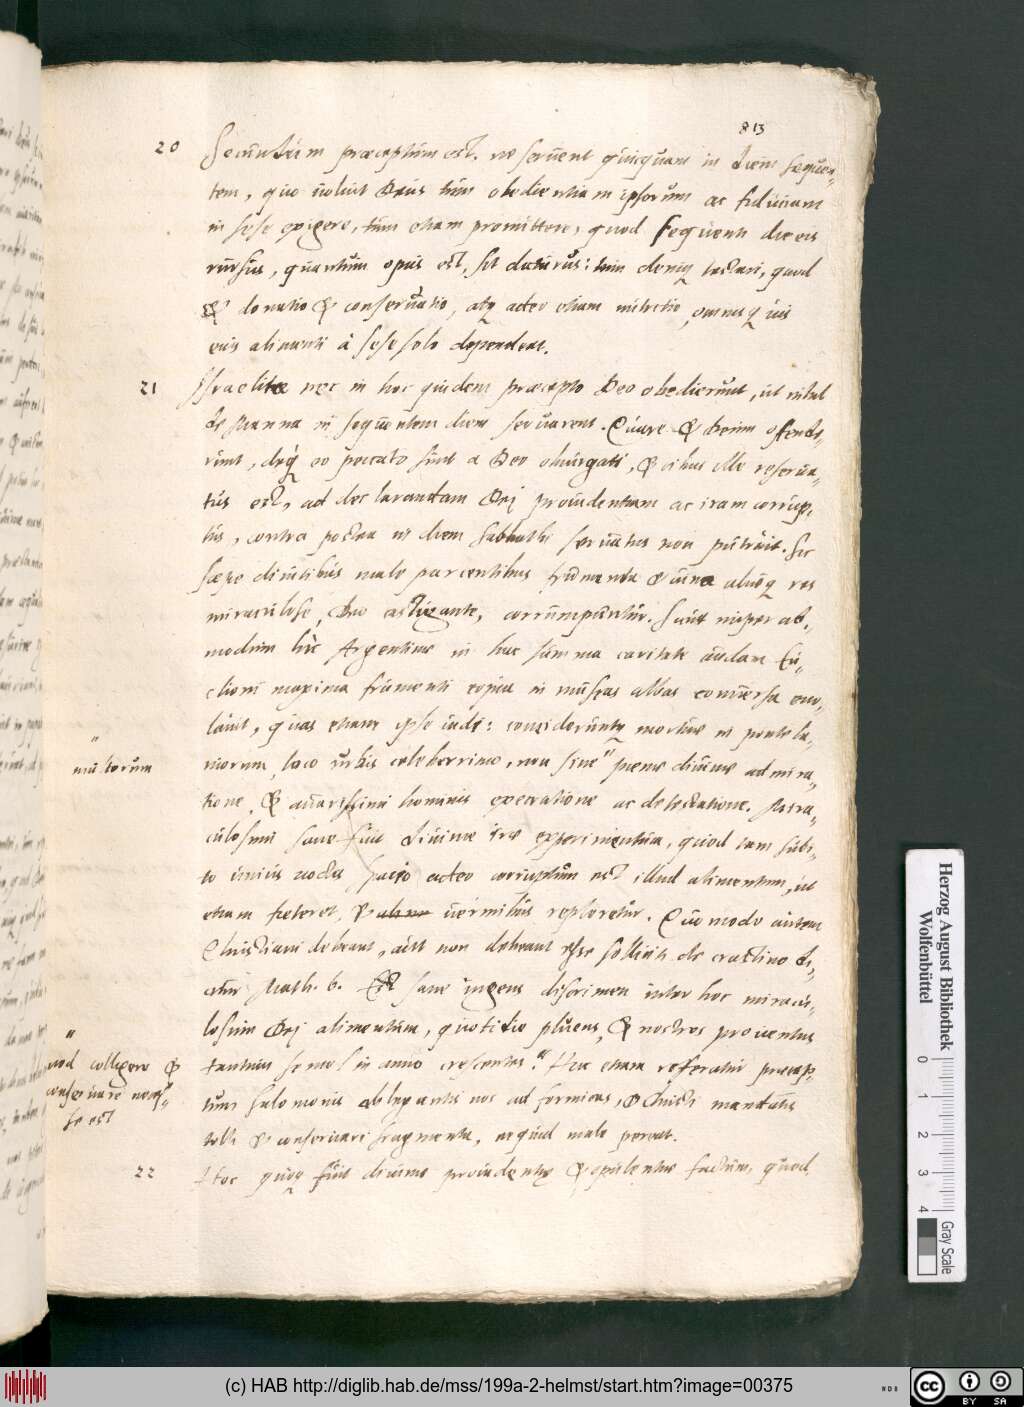 813
20 Secundum præceptum est. ne seruent quicquam in diem sequen-
tem, quo uoluit Deus tùm obedientiam ipsorum ac fiduciam
in sese exigere, tùm etiam promittere, quod sequenti die eis
rursus, quantum opus est, sit daturus: tum deniq doceri, quod
& donatio & conseruatio, atq adeo etiam nutritio, omnisq uis
eius alimenti à sese solo dependeat.
21 Israelitæ nec in hoc quidem præcepto Deo obedierunt, ut nihil
de Manna in sequentem diem seruarent. Quare & Deum offende-
runt, deq eo peccato sunt a Deo obiurgati, & cibus ille reserua-
tus est, ad declarandam Dei prouidentiam ac iram corrup-
tus, contra postea in diem sabbathi seruatus non putruit. Sic
sæpe diuitibus male parcentibus frumenta & uina aliæq res
miraculose, Deo castigante, corrumpuntur. Sicut nuper ad-
modum hîc Argentinæ in hac summa caritate cuidam
maxima frumenti copia in muscas albas conuersa euo-
lauit, quas etiam ipse uidi: ceciderunt mortuæ in ponte la-
niorum, loco urbis celeberrimo, non sine " pene diuinæ admira-
" multorum
tione, & auarissimi hominis execratione ac detestatione. Mira-
culosum sane fuit diuinæ iræ experimentum, quod tam subi-
to unius noctis spacio adeo corruptum est illud alimentum, ut
etiam feteret, & uermibus repleretur. Quomodo autem
Christiani debeant, aut non debeant esse solliciti de crastino di-
citur Math. 6. Est sane ingens discrimen inter hoc miracu-
losum Dei alimentum, quotidie pluens, & nostros prouentus
tantum semel in anno crescentes." Huc etiam referatur præcep-
" quod colligere &
conseruare neces-
se est
tum Salomonis ablegantis nos ad formicas, & Christi mandatum
tolli & conseruari fragmenta, ne quid male pereat.
22 Hoc quoq fuit diuinæ prouidentiæ & opulentiæ factum, quod
Herzog August Bibliothek
Wolfenbüttel
0 1 2 3 4
Gray Scale
(c) HAB http://diglib.hab.de/mss/199a-2-helmst/start.htm?image=00375
cc BY SA